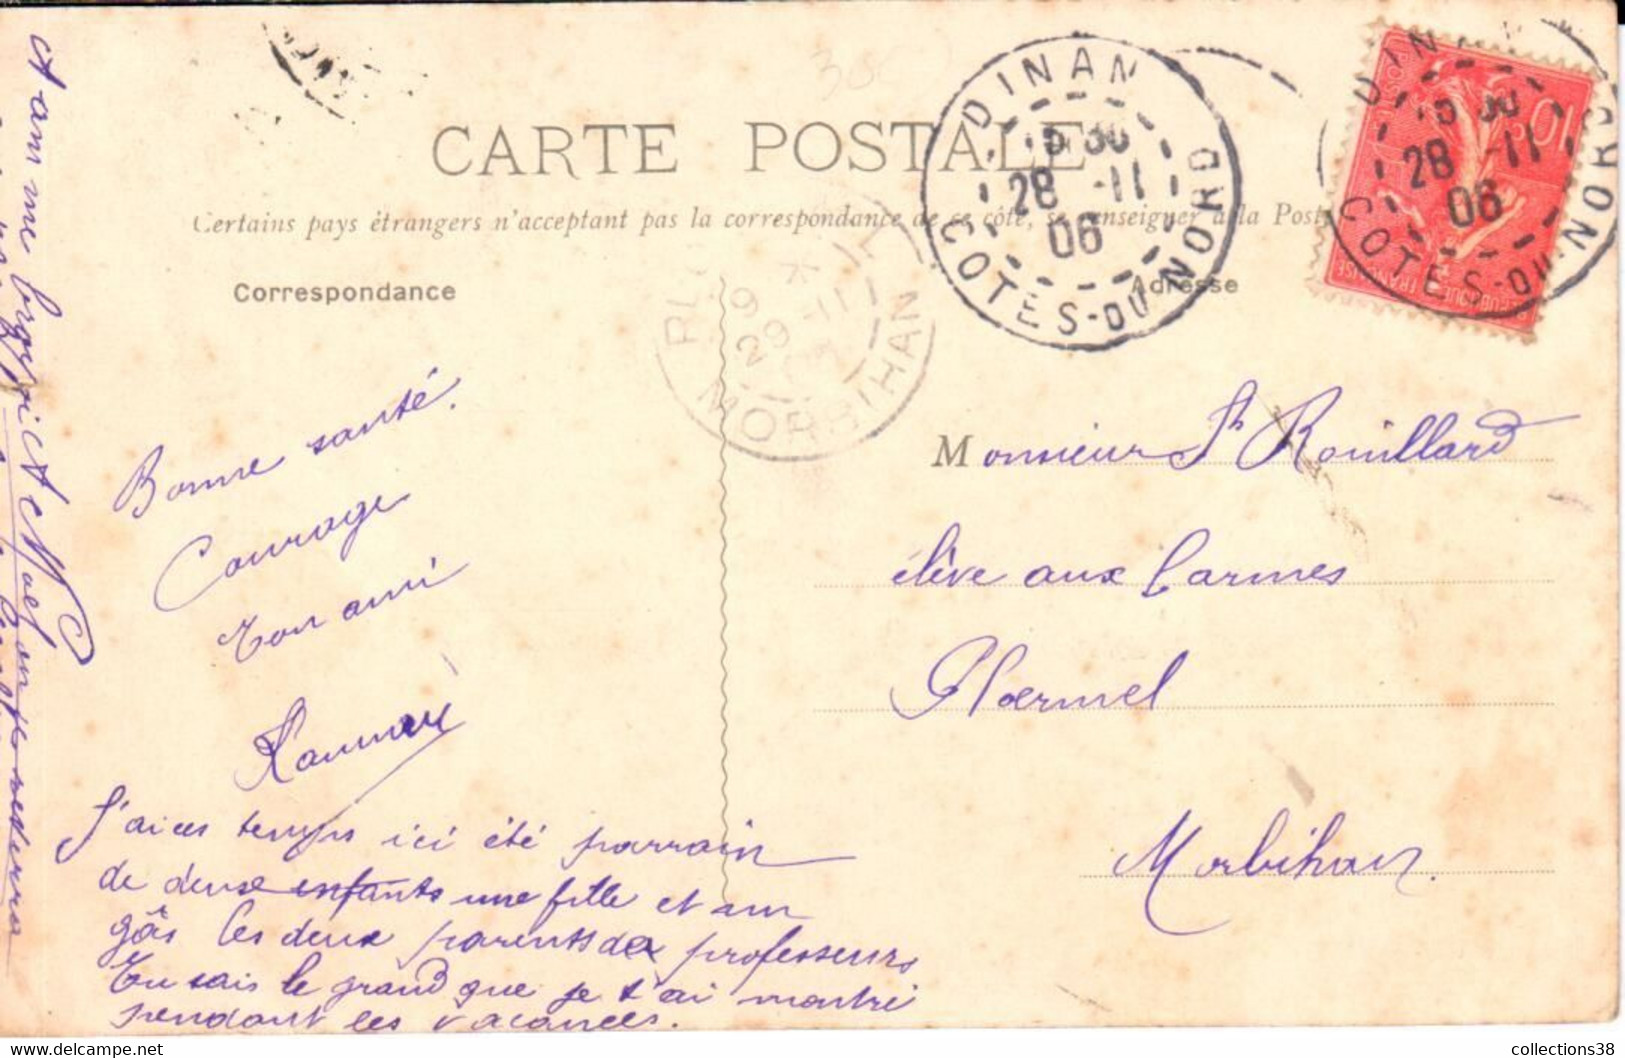 CARTE POSTALE
Certains pays étrangers n'acceptent pas la correspondance de ce côté, se renseigner à la Post
Correspondance
Adresse
DINAN
5 30
28 -11
06
COTES-DU-NORD
DINAN
5 30
28 -11
06
COTES-DU-NORD
10c
POSTES
REPUBLIQUE FRANÇAISE
PL
9 *
29 -11
MORBIHAN
Bonne santé.
Courage
Ton ami
J'ai ces temps ici été parrain
de deux enfants une fille et un
gâs les deux parents de professeurs
Tu sais le grand que je t'ai montré
pendant les vacances.
Monsieur Rouillard
élève aux Carmes
Ploermel
Morbihan.
et Noel on se reverra
collections38